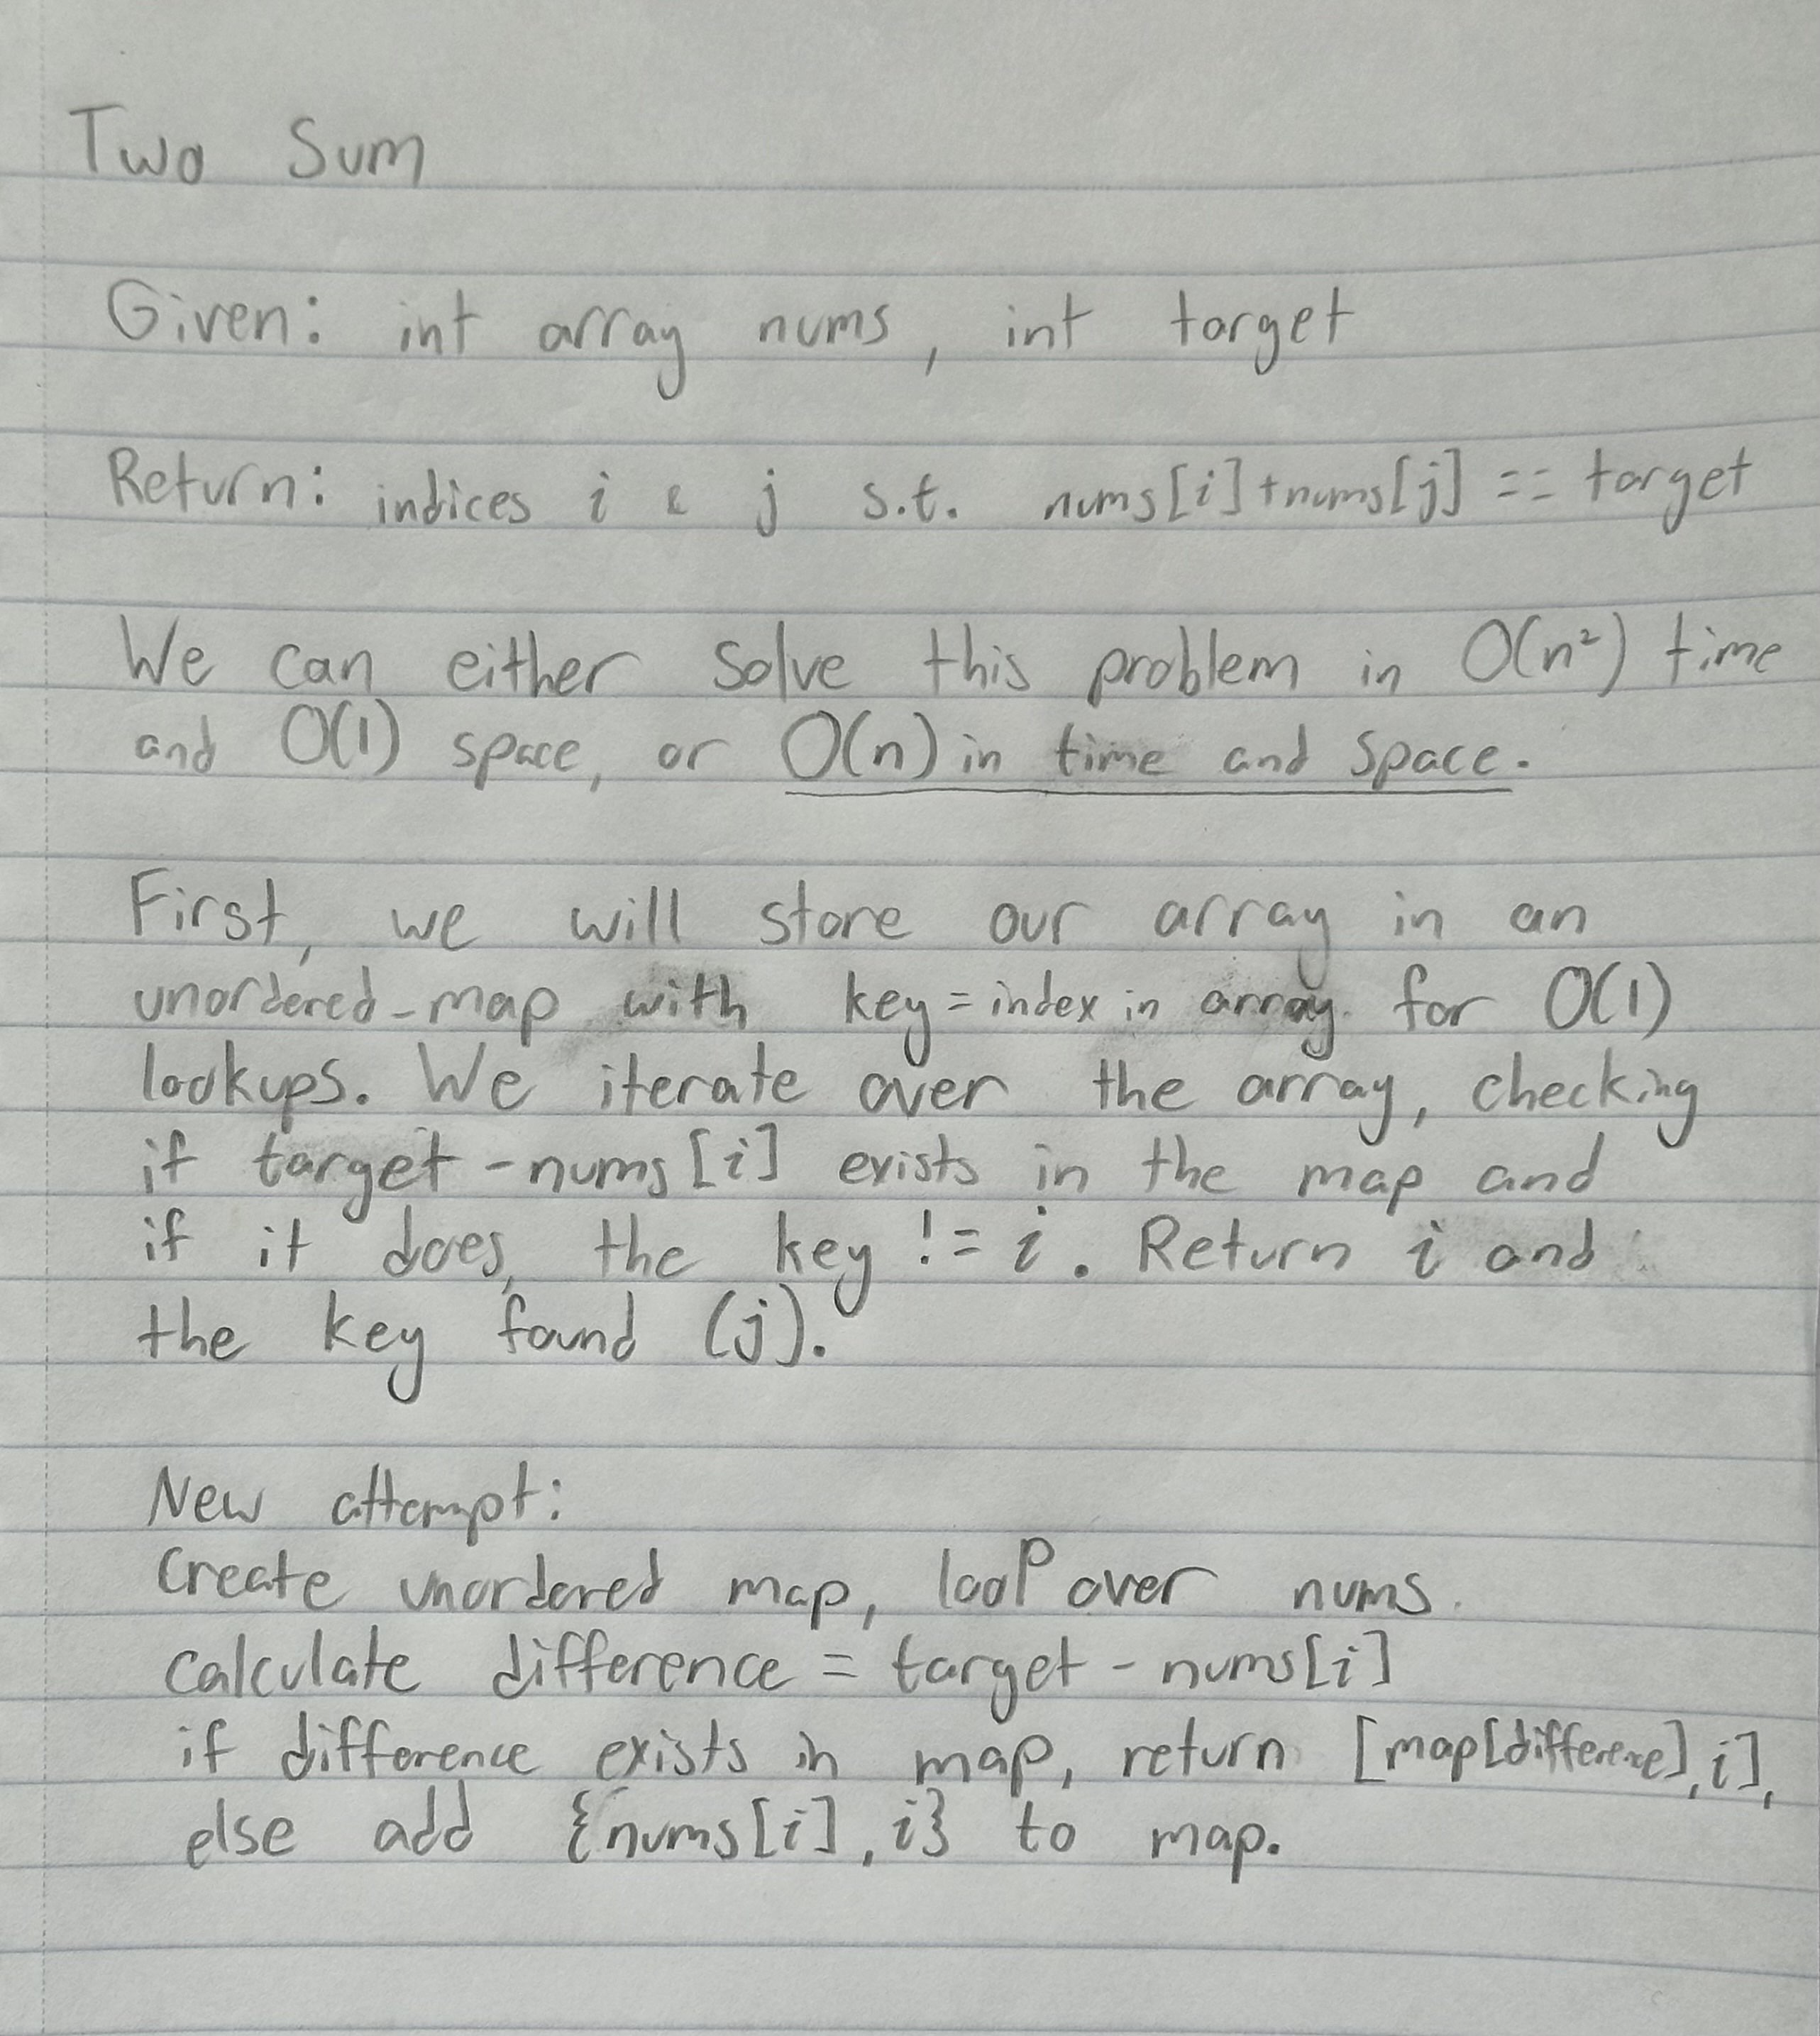 Two Sum
Given: int array nums, int target
Return: indices i & j s.t. nums[i]+nums[j] == target
We can either solve this problem in O(n²) time
and O(1) space, or O(n) in time and space.
First, we will store our array in an
unordered_map with key = index in array for O(1)
lookups. We iterate over the array, checking
if target - nums[i] exists in the map and
if it does, the key != i. Return i and
the key found (j).
New attempt:
Create unordered map, loop over nums.
calculate difference = target - nums[i]
if difference exists in map, return [map[difference], i],
else add {nums[i], i} to map.